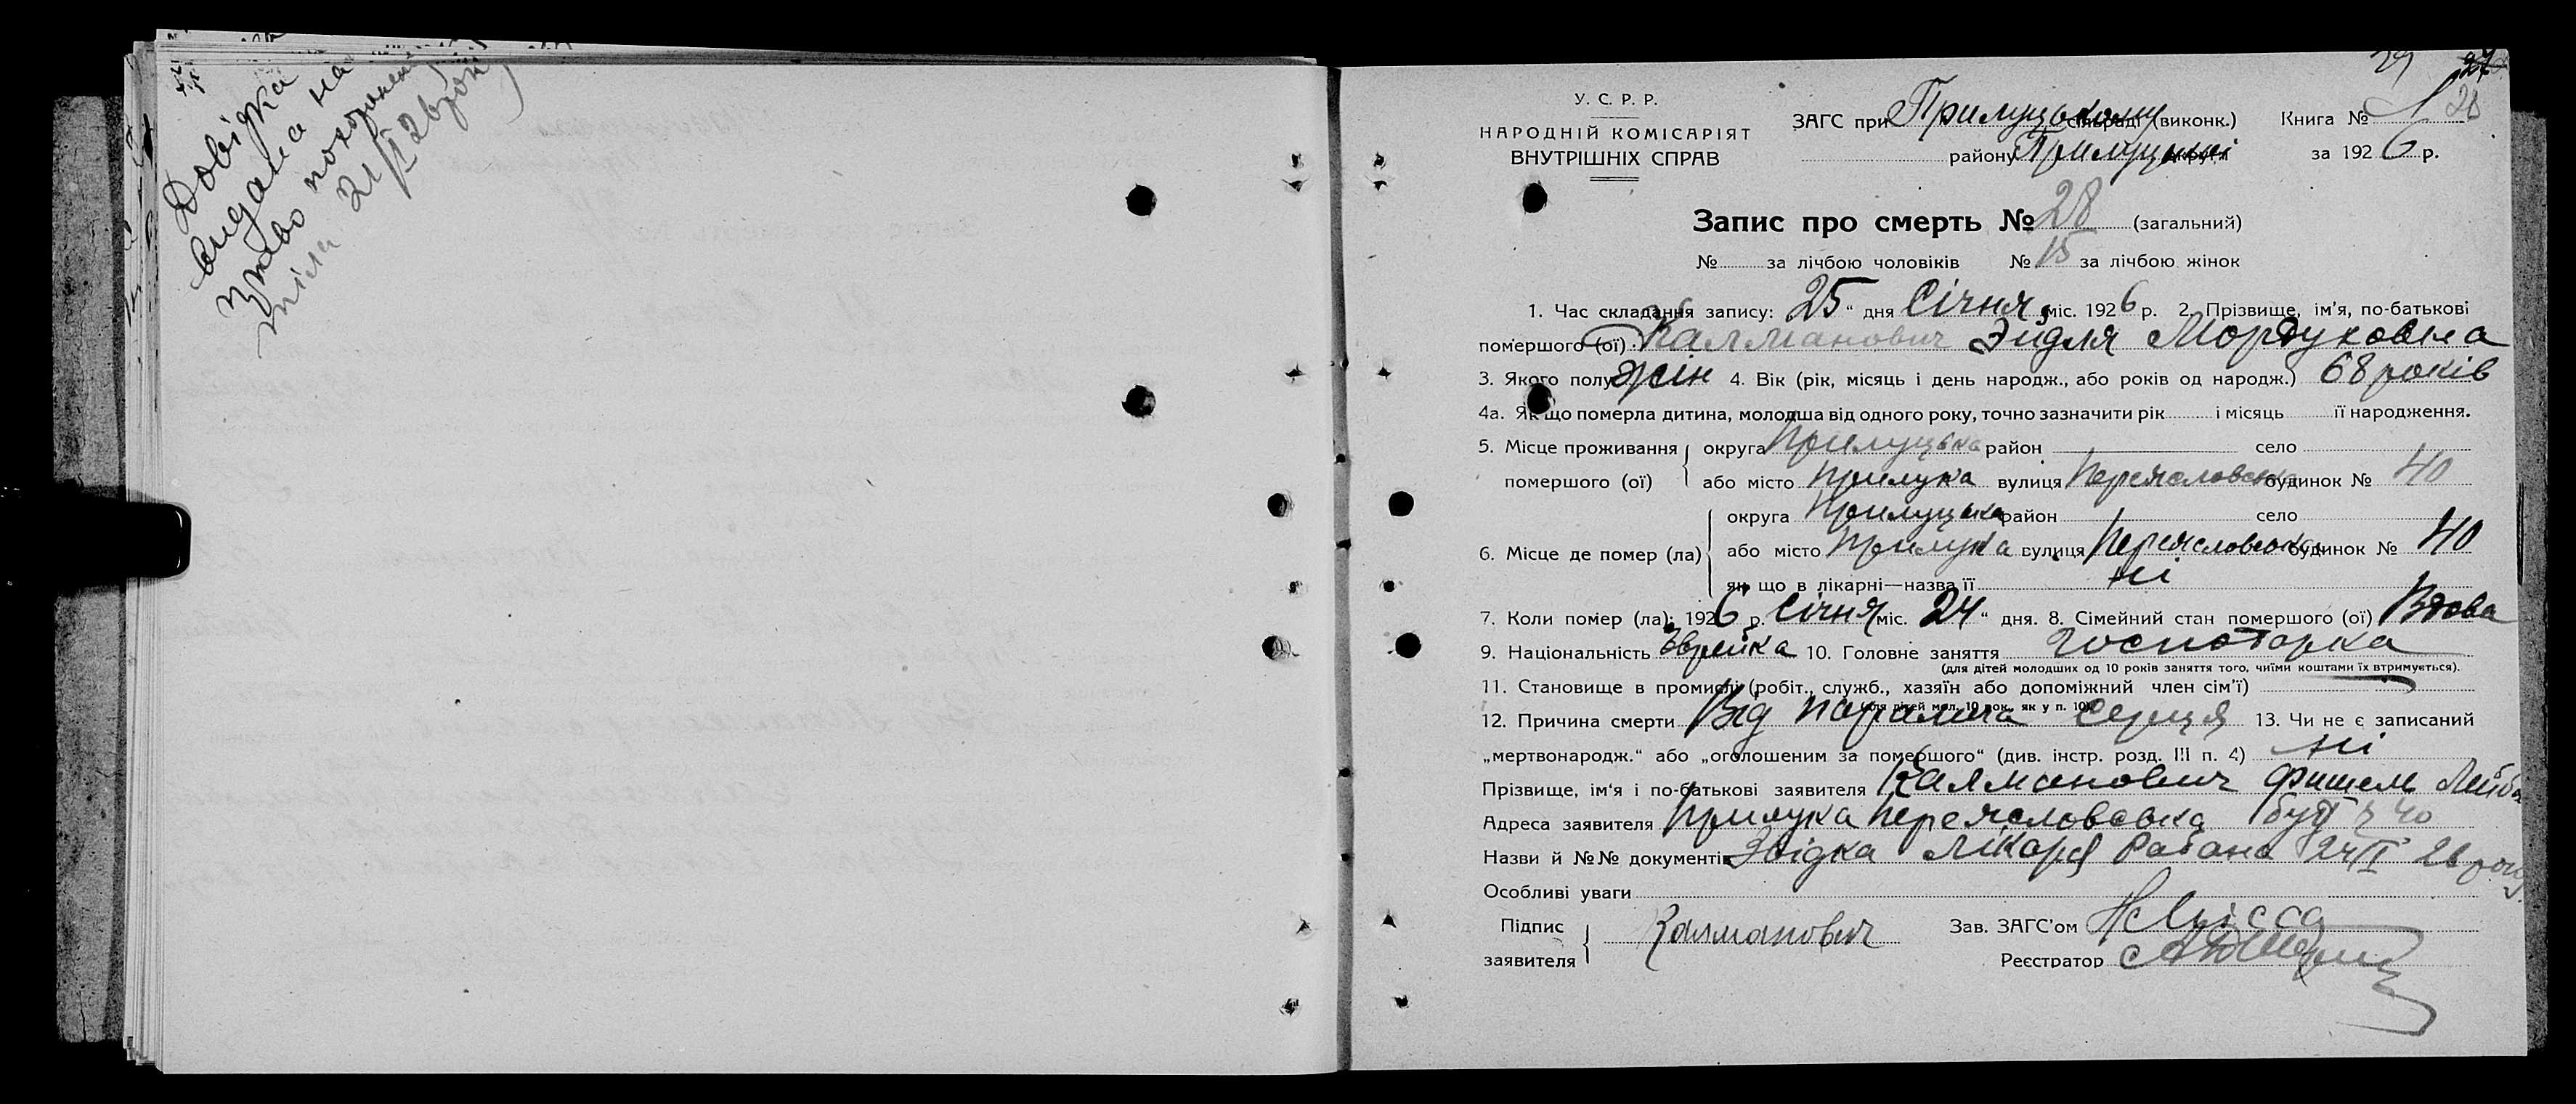 Довідка
видана на
право поховання
тіла 26 року
29 27
28
У. С. Р. Р.
НАРОДНІЙ КОМІСАРІЯТ
ВНУТРІШНІХ СПРАВ
ЗАГС при Прилуцькому сільраді (виконк.) Книга №
району Прилуцькі за 1926 р.
Запис про смерть № 28 (загальний)
№ за лічбою чоловіків № 15 за лічбою жінок
1. Час складання запису: 25 “ дня Січня міс. 1926 р. 2. Прізвище, ім'я, по-батькові
помершого (ої) Калманович Эйдля Мордуховна
3. Якого полу жін 4. Вік (рік, місяць і день народж., або років од народж.) 68 років
4а. Як що померла дитина, молодша від одного року, точно зазначити рік і місяць її народження.
5. Місце проживання округа Прилуцька район село
помершого (ої) або місто Прилука вулиця Переясловська будинок № 40
округа Прилуцька район село
6. Місце де помер (ла) або місто Прилука вулиця Переясловська будинок № 40
як що в лікарні—назва її ні
7. Коли помер (ла): 1926 р. Січня міс. 24 “ дня. 8. Сімейний стан помершого (ої) Вдова
9. Національність Єврейка 10. Головне заняття господарка
(для дітей молодших од 10 років заняття того, чиїми коштами їх втримується).
11. Становище в промислі (робіт., служб., хазяїн або допоміжний член сім'ї)
(для дітей мол. 10 рок., як у п. 10)
12. Причина смерти Від параліча серця 13. Чи не є записаний
„мертвонародж.“ або „оголошеним за помершого“ (див. інстр. розд. III п. 4) ні
Прізвище, ім'я і по-батькові заявителя Калманович Фишель Лейб
Адреса заявителя Прилука Переясловська буд 40
Назви й №№ документів Звідка Лікаря 24/I 26 року
Особливі уваги
Підпис
заявителя Калманович Зав. ЗАГС'ом
Реєстратор